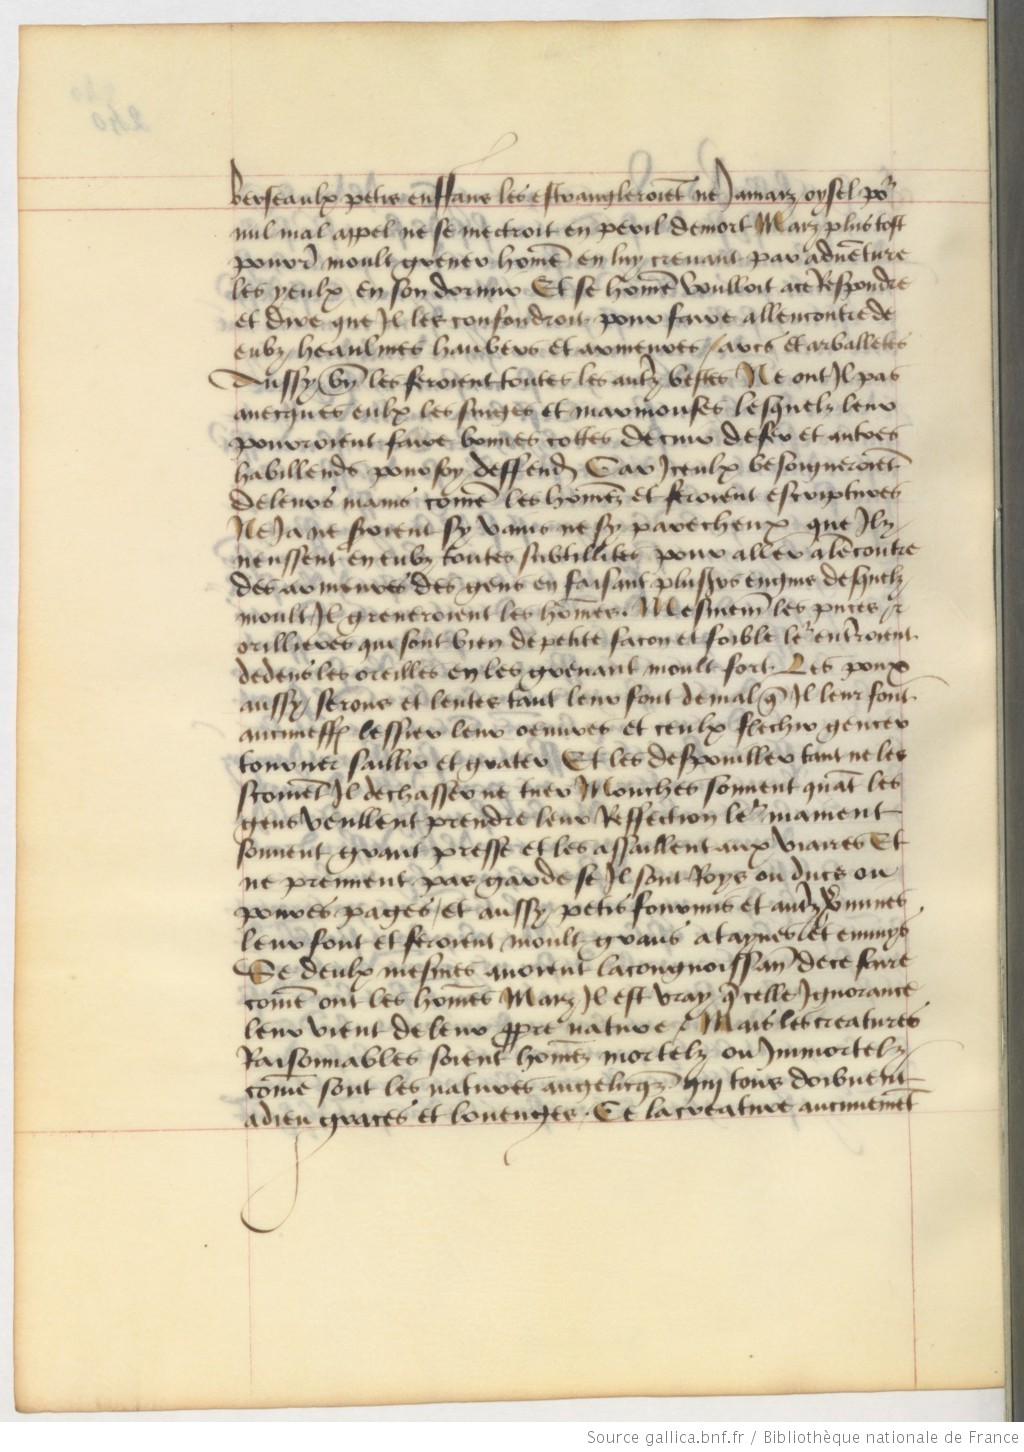 berseaulx petis enffans les estrangleroiēt ne Jamaiz oysel po᷑
nul mal appel ne se mectroit en peril de mort Maiz plus tost
pourr̄ moult grever hom̄e en luy crevant par advēture
les yeulx en son dormir Et se hom̄e voulloit ace Respondre
et dire que Jl les confondroit pour faire allencontre de
eulz heaulmes haubers et armeures / arcs et arballetes
Aussy by les feroient toutes les autz bestes Ne ont Jl pas
avecques eulx les singes et marmouses lesquelz leur
pourroient faire bonnes cottes de cuir de fer et autres
habillends pour soy deffend Car Jceulx besoigneroiēt
de leurs mains com̄e les hom̄ez et feroient escriptures
Ne Ja ne seroient sy vains ne sy parecheux que Jlz
neussent en eulz toutes subtillites pour aller alēcontre
des armeures des gens en faisant plus᷑s engins desquelz
moult Jl greneroient les hom̄es. Mesmem̄ les puces &
orillieres que sont bien de petite facon et foible le᷑ entreroient
dedens les oreilles en les grevant moult fort Les poux
aussy serons et lentes tant leur font de mal q̄ Jl leur font
aucuneff᷑ lessier leur oeuvres et ceulx flechir gencer
tourner saillir et grater Et les despouiller tant ne les
scaivēt Jl dechasser ne tuer Mouches sonnent quāt les
gens veullent prendre leur Reffection le᷑ mainent
souvent grant presse et les assaillent aux viaires Et
ne prennent pas garde se Jl sont Roys ou ducs ou
povres pages / et aussy petis fourmis et autz vermines
leur font et feroient moult grans ataynes et ennuys
Se deulx mesmes avoient la congnoissan̄ de ce faire
com̄e ont les hom̄es Maiz Jl est vray q̄ celle Jgnorance
leur vient de leur ꝓpre nature / Mais les creatures
Raisonnables soient hom̄ez mortelz ou Jmmortelz
com̄e sont les natures angelicqz qui tous doibvent
a dieu graces et louenges. Ce la creature aucunemēt
Source gallica.bnf.fr / Bibliothèque nationale de France